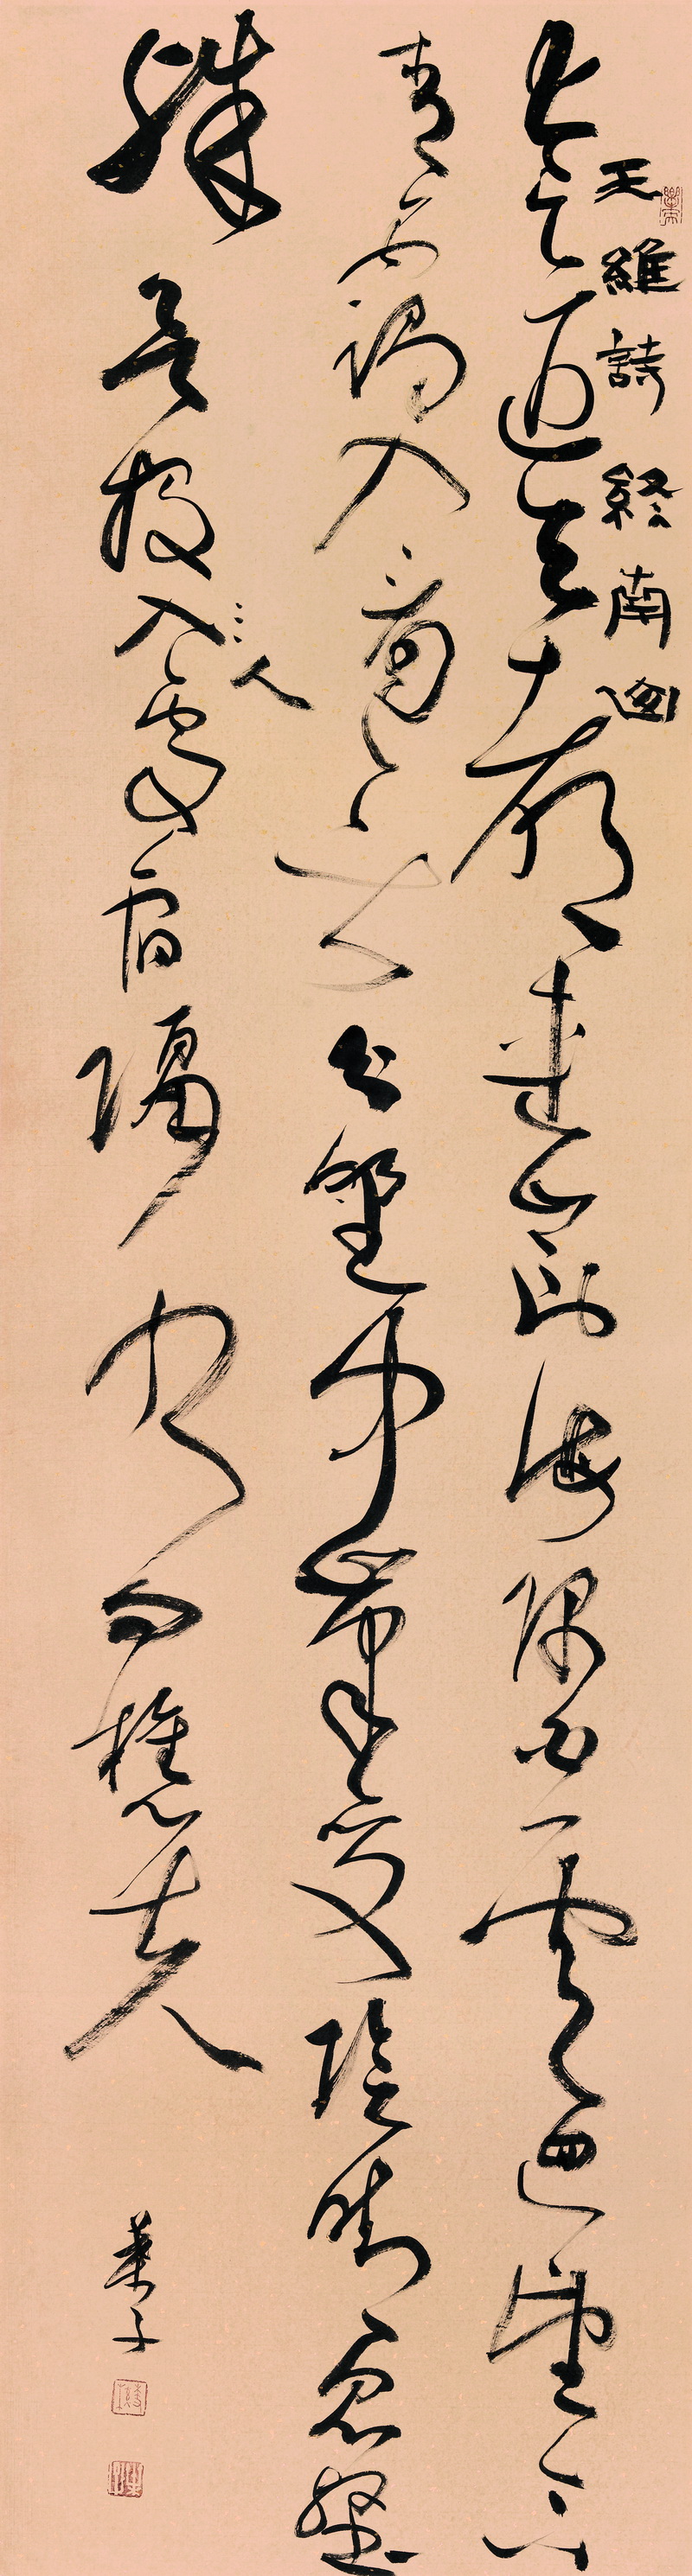 王維詩終南山
太乙近天都連山到海隅白雲迴望合
青靄入看無分野中峯變陰晴眾壑
殊欲投入處宿隔水問樵夫
人
葉子